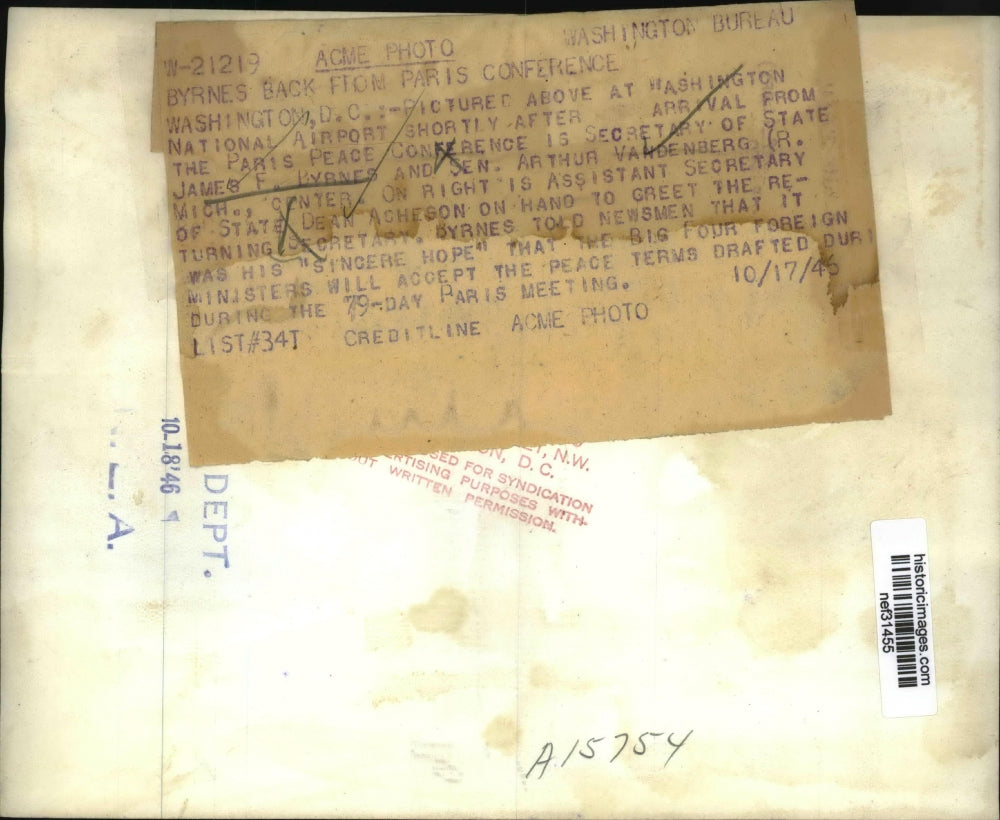 W-21219 ACME PHOTO WASHINGTON BUREAU
BYRNES BACK FTOM PARIS CONFERENCE
WASHINGTON,D.C.:-PICTURED ABOVE AT WASHINGTON
NATIONAL AIRPORT SHORTLY AFTER ARRIVAL FROM
THE PARIS PEACE CONFERENCE IS SECRETARY OF STATE
JAMES F. BYRNES AND SEN. ARTHUR VANDENBERG (R.
MICH., CENTER. ON RIGHT IS ASSISTANT SECRETARY
OF STATE DEAN ACHESON ON HAND TO GREET THE RE-
TURNING SECRETARY. BYRNES TOLD NEWSMEN THAT IT
WAS HIS "SINCERE HOPE" THAT THE BIG FOUR FOREIGN
MINISTERS WILL ACCEPT THE PEACE TERMS DRAFTED DURI
DURING THE 79-DAY PARIS MEETING. 10/17/46
LIST#34T CREDITLINE ACME PHOTO
N.W.
D. C.
SED FOR SYNDICATION
RTISING PURPOSES WITH-
OUT WRITTEN PERMISSION.
10-18'46
DEPT.
E. A.
historicimages.com
nef31455
A15754